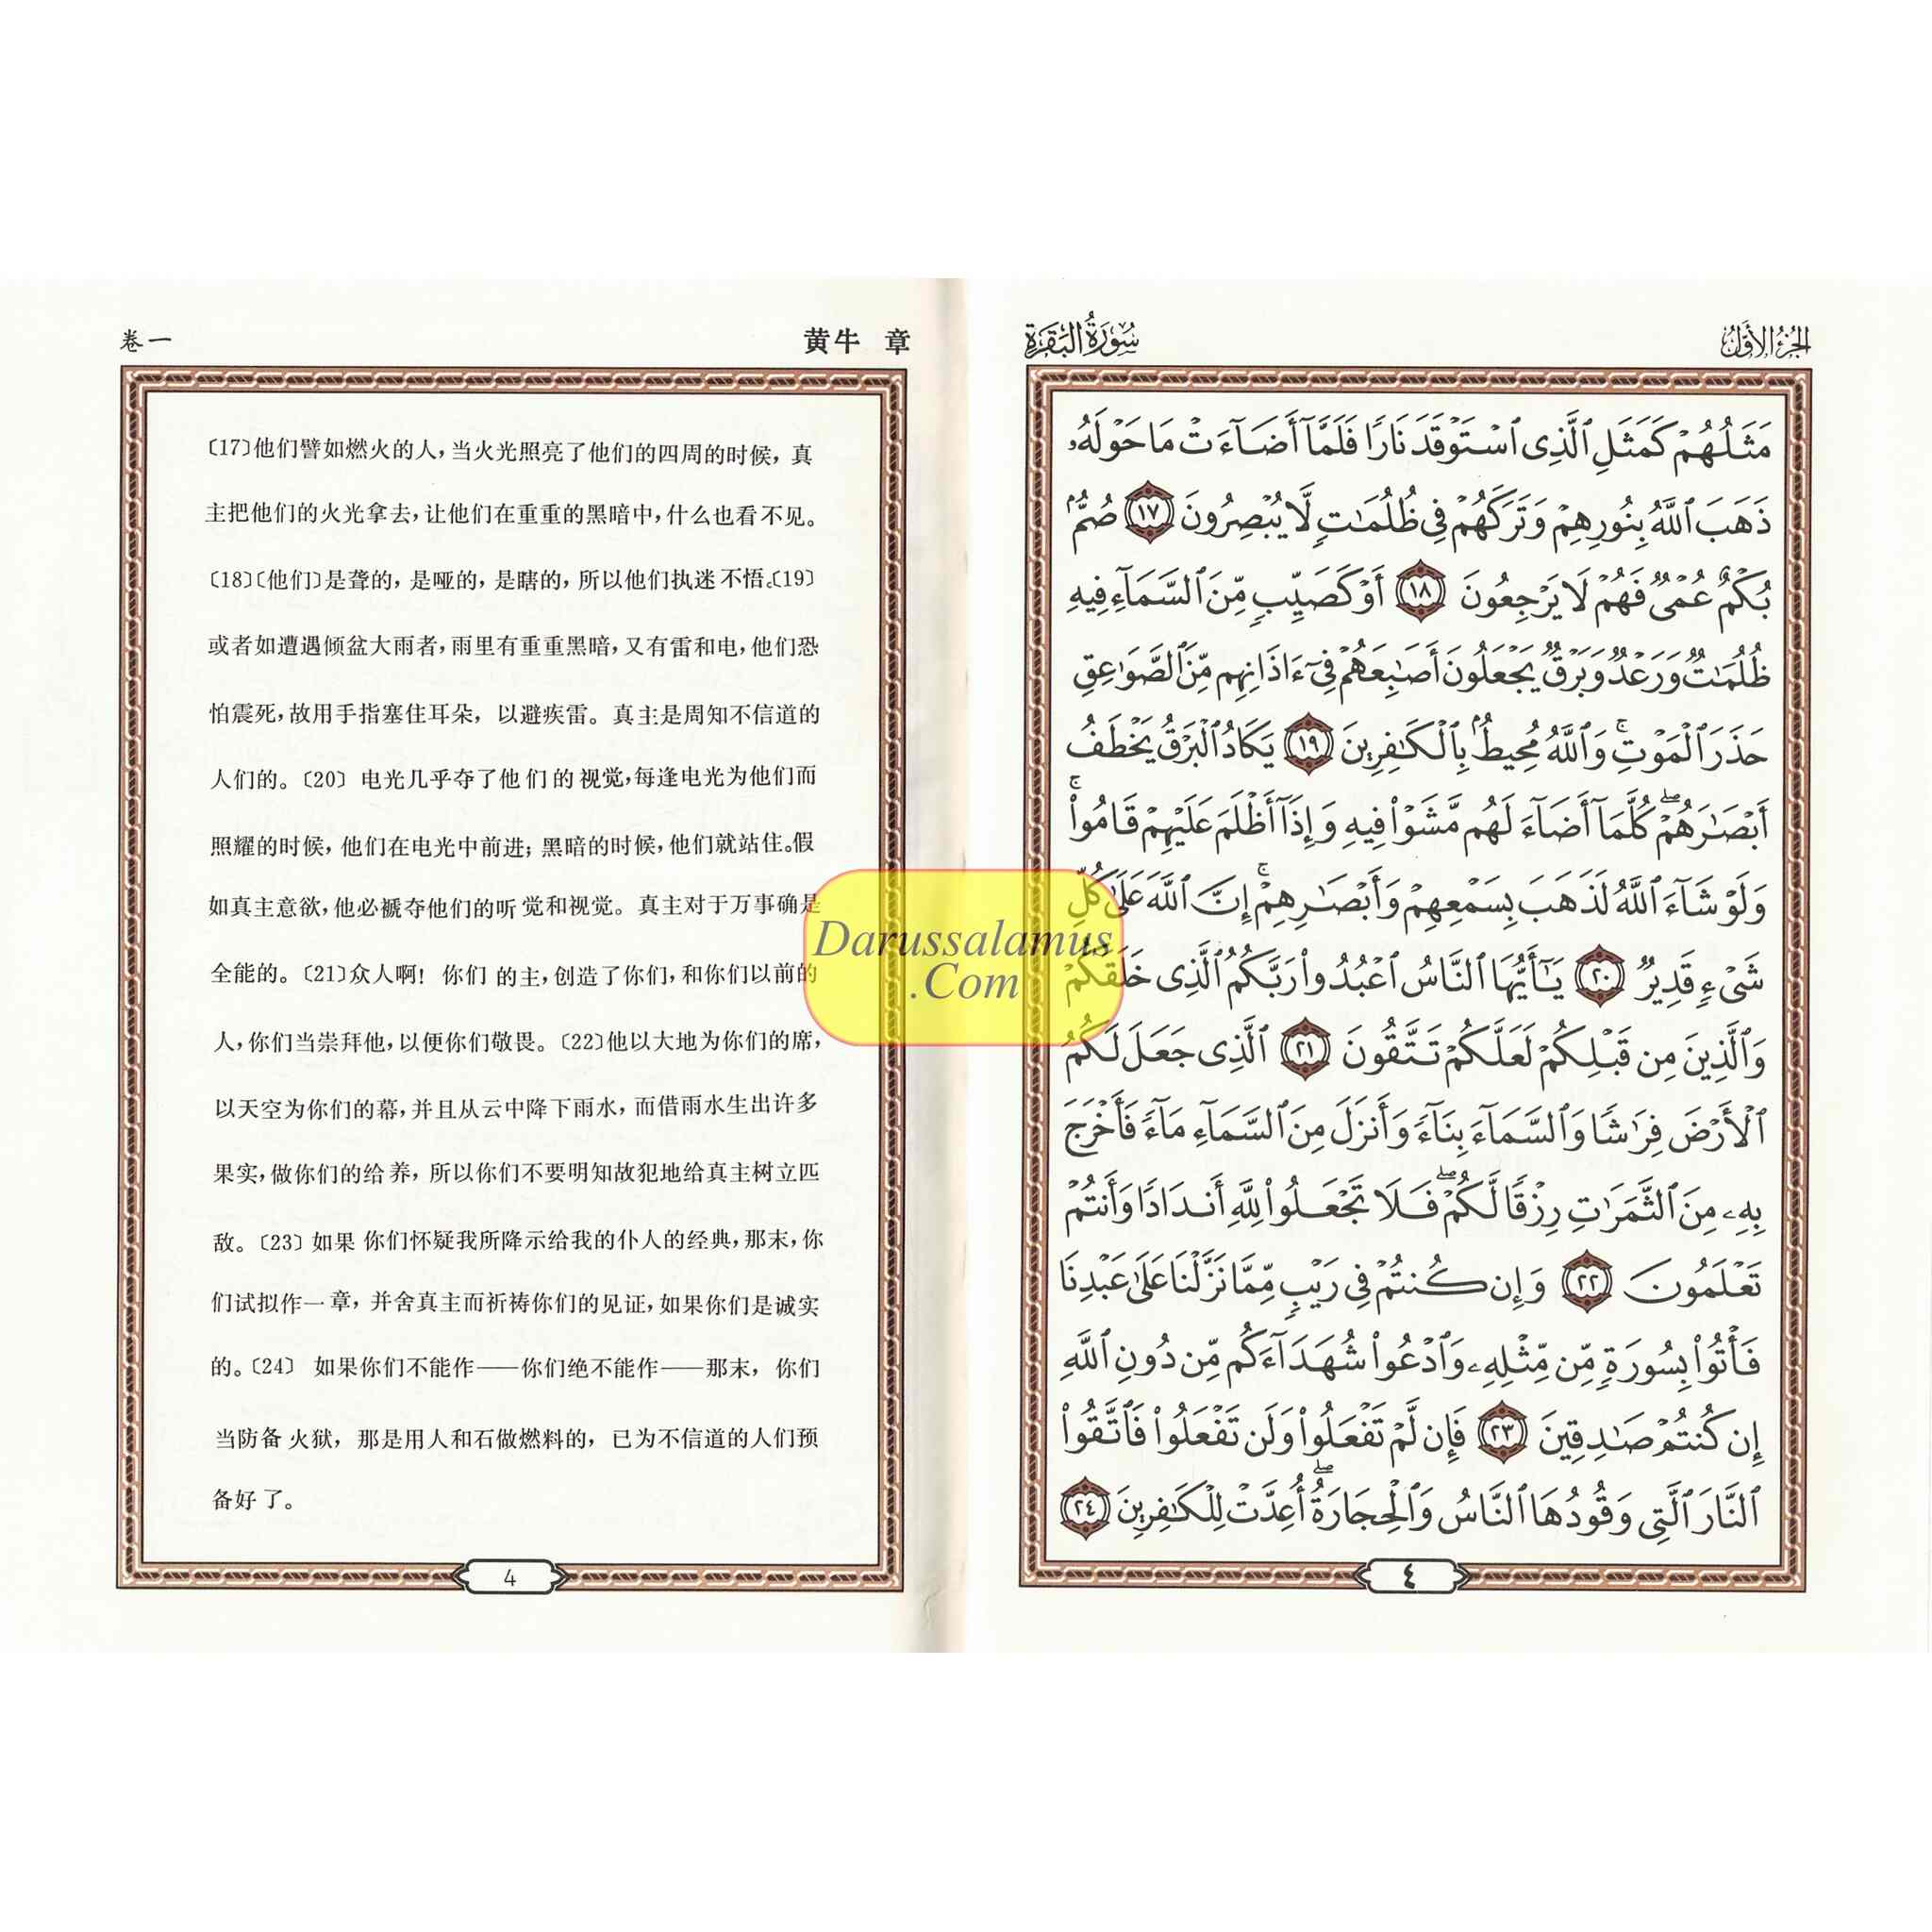 卷一
黄牛 章
〔17〕他们譬如燃火的人，当火光照亮了他们的四周的时候，真
主把他们的火光拿去，让他们在重重的黑暗中，什么也看不见。
〔18〕〔他们〕是聋的，是哑的，是瞎的，所以他们执迷不悟。〔19〕
或者如遭遇倾盆大雨者，雨里有重重黑暗，又有雷和电，他们恐
怕震死，故用手指塞住耳朵，以避疾雷。真主是周知不信道的
人们的。〔20〕电光几乎夺了他们的视觉，每逢电光为他们而
照耀的时候，他们在电光中前进；黑暗的时候，他们就站住。假
如真主意欲，他必褫夺他们的听觉和视觉。真主对于万事确是
全能的。〔21〕众人啊！你们的主，创造了你们，和你们以前的
人，你们当崇拜他，以便你们敬畏。〔22〕他以大地为你们的席，
以天空为你们的幕，并且从云中降下雨水，而借雨水生出许多
果实，做你们的给养，所以你们不要明知故犯地给真主树立匹
敌。〔23〕如果你们怀疑我所降示给我的仆人的经典，那末，你
们试拟作一章，并舍真主而祈祷你们的见证，如果你们是诚实
的。〔24〕如果你们不能作——你们绝不能作——那末，你们
当防备火狱，那是用人和石做燃料的，已为不信道的人们预
备好了。
4
الجزء الأول
سورة البقرة
مَثَلُهُمْ كَمَثَلِ ٱلَّذِى ٱسْتَوْقَدَ نَارًا فَلَمَّآ أَضَآءَتْ مَا حَوْلَهُۥ
ذَهَبَ ٱللَّهُ بِنُورِهِمْ وَتَرَكَهُمْ فِى ظُلُمَٰتٍ لَّا يُبْصِرُونَ ١٧ صُمٌّۢ
بُكْمٌ عُمْىٌ فَهُمْ لَا يَرْجِعُونَ ١٨ أَوْ كَصَيِّبٍ مِّنَ ٱلسَّمَآءِ فِيهِ
ظُلُمَٰتٌ وَرَعْدٌ وَبَرْقٌ يَجْعَلُونَ أَصَٰبِعَهُمْ فِىٓ ءَاذَانِهِم مِّنَ ٱلصَّوَٰعِقِ
حَذَرَ ٱلْمَوْتِ ۚ وَٱللَّهُ مُحِيطٌۢ بِٱلْكَٰفِرِينَ ١٩ يَكَادُ ٱلْبَرْقُ يَخْطَفُ
أَبْصَٰرَهُمْ ۖ كُلَّمَآ أَضَآءَ لَهُم مَّشَوْا۟ فِيهِ وَإِذَآ أَظْلَمَ عَلَيْهِمْ قَامُوا۟ ۚ
وَلَوْ شَآءَ ٱللَّهُ لَذَهَبَ بِسَمْعِهِمْ وَأَبْصَٰرِهِمْ ۚ إِنَّ ٱللَّهَ عَلَىٰ كُلِّ
شَىْءٍ قَدِيرٌ ٢٠ يَٰٓأَيُّهَا ٱلنَّاسُ ٱعْبُدُوا۟ رَبَّكُمُ ٱلَّذِى خَلَقَكُمْ
وَٱلَّذِينَ مِن قَبْلِكُمْ لَعَلَّكُمْ تَتَّقُونَ ٢١ ٱلَّذِى جَعَلَ لَكُمُ
ٱلْأَرْضَ فِرَٰشًا وَٱلسَّمَآءَ بِنَآءً وَأَنزَلَ مِنَ ٱلسَّمَآءِ مَآءً فَأَخْرَجَ
بِهِۦ مِنَ ٱلثَّمَرَٰتِ رِزْقًا لَّكُمْ ۖ فَلَا تَجْعَلُوا۟ لِلَّهِ أَندَادًا وَأَنتُمْ
تَعْلَمُونَ ٢٢ وَإِن كُنتُمْ فِى رَيْبٍ مِّمَّا نَزَّلْنَا عَلَىٰ عَبْدِنَا
فَأْتُوا۟ بِسُورَةٍ مِّن مِّثْلِهِۦ وَٱدْعُوا۟ شُهَدَآءَكُم مِّن دُونِ ٱللَّهِ
إِن كُنتُمْ صَٰدِقِينَ ٢٣ فَإِن لَّمْ تَفْعَلُوا۟ وَلَن تَفْعَلُوا۟ فَٱتَّقُوا۟
ٱلنَّارَ ٱلَّتِى وَقُودُهَا ٱلنَّاسُ وَٱلْحِجَارَةُ ۖ أُعِدَّتْ لِلْكَٰفِرِينَ ٢٤
٤
Darussalamus
.Com